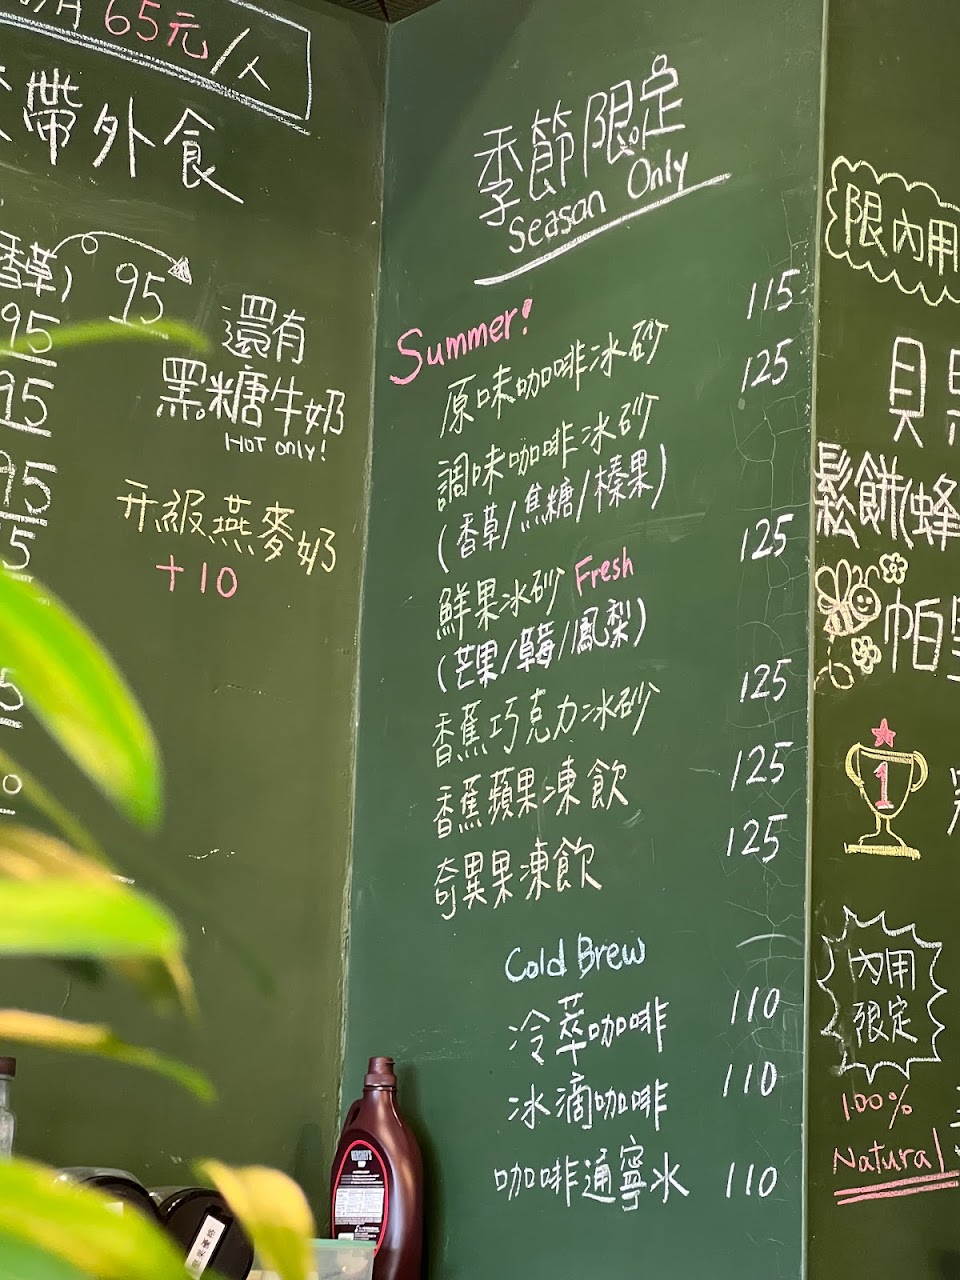 65元/人
帶外食
香草) 95
95
95
95
還有
黑糖牛奶
HOT only!
升級燕麥奶
+10
季節限定
Seasan Only
Summer!
原味咖啡冰砂 115
調味咖啡冰砂 125
(香草/焦糖/榛果)
鮮果冰砂 Fresh 125
(芒果/草莓/鳳梨)
香蕉巧克力冰砂 125
香蕉蘋果凍飲 125
奇異果凍飲 125
Cold Brew
冷萃咖啡 110
冰滴咖啡 110
咖啡通寧冰 110
HERSHEY'S
限內用
貝果
鬆餅(蜂
帕里
1
內用
限定
100%
Natural